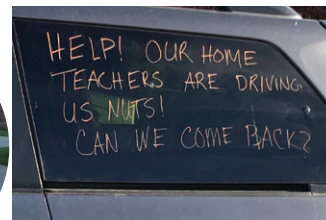 HELP! OUR HOME
TEACHERS ARE DRIVING
US NUTS!
CAN WE COME BACK?